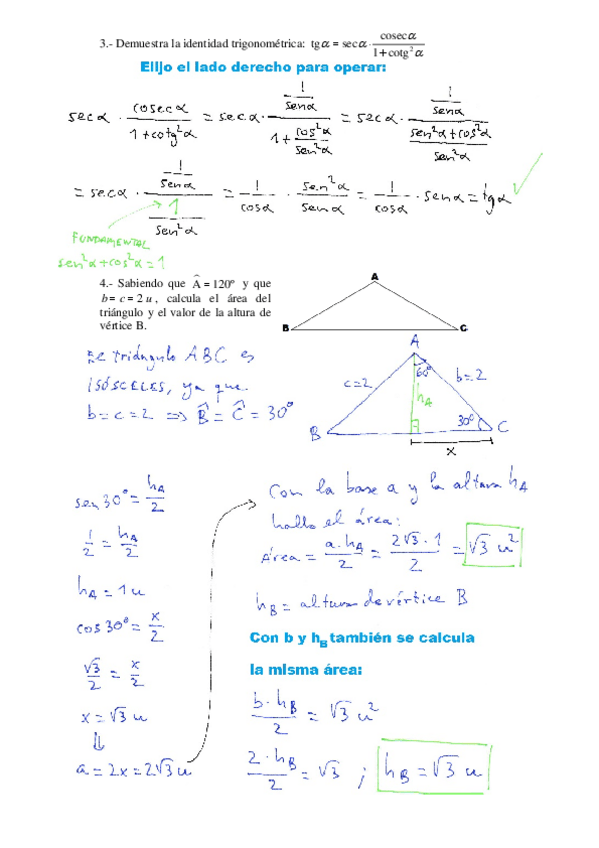 3.- Demuestra la identidad trigonométrica: tgα = secα · cosecα / (1 + cotg²α)
Elijo el lado derecho para operar:
secα · cosecα / (1+cotg²α) = secα · (1/senα) / (1 + cos²α/sen²α) = secα · (1/senα) / ((sen²α+cos²α)/sen²α)
= secα · (1/senα) / (1/sen²α) = 1/cosα · sen²α/senα = 1/cosα · senα = tgα ✓
FUNDAMENTAL
sen²α+cos²α=1
4.- Sabiendo que Â = 120º y que
b = c = 2 u , calcula el área del
triángulo y el valor de la altura de
vértice B.
A
B
C
El triángulo ABC es
ISÓSCELES, ya que.
b = c = 2 ⇒ B̂ = Ĉ = 30º
A
c=2
60º
b=2
hA
30º
B
C
x
sen30º = hA/2
1/2 = hA/2
hA = 1u
cos30º = x/2
√3/2 = x/2
x = √3 u
⇓
a = 2x = 2√3 u
Con la base a y la altura hA
hallo el área:
Área = a·hA/2 = 2√3·1/2 = √3 u²
hB = altura de vértice B
Con b y hB también se calcula
la misma área:
b·hB/2 = √3 u²
2·hB/2 = √3 ; hB = √3 u